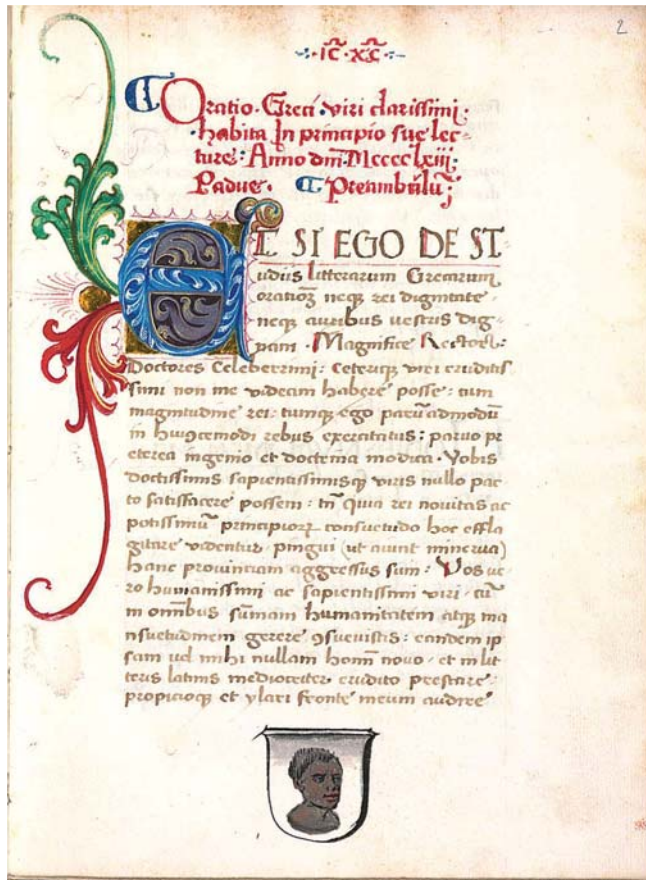 2
·IC̄·XC̄·
Oratio·Greci·viri clarissimi·
·habita In principio sue lec-
ture: Anno dn̄i·Mcccclxiii·
Padue· Preambulū;
ET SI EGO DE ST
udiis litterarum Grecarum
oratioꝫ neqꝫ rei dignitate·
neqꝫ auribus vestris dig-
nam· Magnifice Rector:
Doctores Celeberrimi: Ceteriqꝫ viri eruditis
simi non me videam habere posse: tum
magnitudine rei: tumqꝫ ego parū admodū
in huiꝰcemodi rebus exercitatus: parvo pr
eterea ingenio et doctrina modica· Vobis
doctissimis sapientissimisqꝫ viris nullo pac
to satisfacere possem: tn̄ quia rei novitas ac
potissimū principioꝝ consuetudo hoc effla
gitare videntur· pingui (ut aiunt minerva)
hanc provinciam aggressus sum: Vos ve
ro humanissimi ac sapientissimi viri· cū
in om̄ibus sūmam humanitatem atqꝫ ma
nsuetudinem gerere ꝯsuevistis: eandem ip
sam vel mihi nullam homī novo· et in lit
teris latinis mediocriter erudito prestare·
propicioqꝫ et ylari fronte meum audire